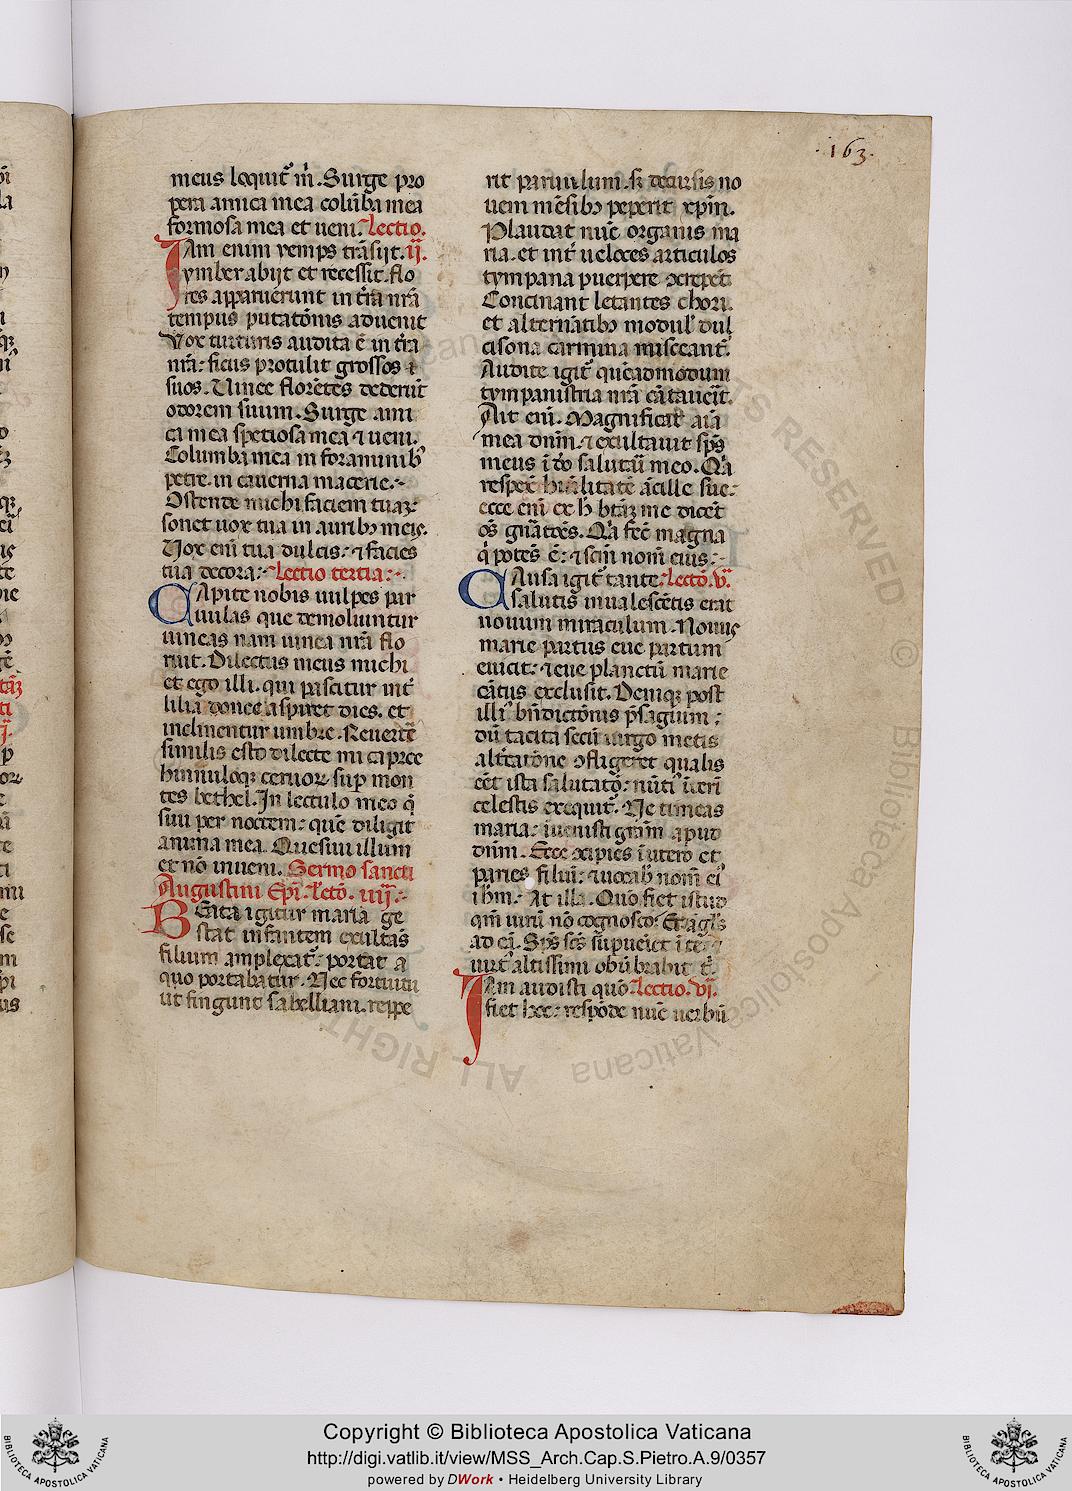 ·163·
meus loquit᷑ m̄. Surge pro
pera amica mea colūba mea
formosa mea et ueni. Lectio.
Iam enim yemps trāsijt. ij.
ymber abijt et recessit. flo
res apparuerunt in t̄ra nr̄a
tempus putatōnis aduenit
Vox turturis audita ē in t̄ra
nr̄a: ficus protulit grossos
suos. Vinee florētes dederūt
odorem suum. Surge ami
ca mea spetiosa mea ⁊ ueni.
Columba mea in foraminibꝰ
petre. in cauerna macerie.
Ostende michi faciem tuaꝫ:
sonet uox tua in auribꝫ meis.
Vox enī tua dulcis: ⁊ facies
tua decora: Lectio tertia:
Capite nobis uulpes par
uulas que demoliuntur
uineas nam uinea nr̄a flo
ruit. Dilectus meus michi
et ego illi. qui pascitur int̄
lilia donec aspiret dies. et
inclinentur umbre. Reuertē
similis esto dilecte mi capree
hinnuloqꝫ ceruoꝝ. sup mon
tes bethel. In lectulo meo q̄
siui per noctem: quē diligit
anima mea. Quesiui illum
et nō inueni. Sermo sancti
Augustini Ep̄i. Lectō. iiij.
Beata igitur maria ge
stat infantem exultās
filium amplexat᷑: portat a
quo portabatur. Nec fortuitu
ut fingunt sabelliani. reppe
rit paruulum. sꝫ decursis no
uem mēsibꝫ peperit xpm̄.
Plaudat nūc organis ma
ria. et int̄ ueloces articulos
tympana puerpere ɔcrepēt.
Concinant letantes chori.
et alternātibꝫ modulꝭ dul
cisona carmina misceant᷑.
Audite igit᷑ quēadmodum
tympanistria nr̄a cātauerit.
Ait enī. Magnificat aīa
mea dn̄m. ⁊ exultauit sp̄s
meus ī dō salutari meo. Q̄a
respexit hūilitatē ācille sue:
ecce enī ex h̄ btāꝫ me dicēt
oēs gn̄atōes. Q̄a fecit magna
q̄ potēs ē: ⁊ scm̄ nom̄ eius:
Causa igit᷑ tante: Lectō. v.
salutis inualescētis erat
nouum miraculum. Nouus
marie partus eue partum
euicit: ⁊ eue planctū marie
cātus exclusit. Deniqꝫ post
illiꝰ bn̄dictōnis p̄sagium:
dū tacita secū uirgo mētis
alt̄catōne ɔfligeret qualis
eēt ista salutatō: nūtiꝰ it̄eri
celestis exequit᷑. Ne timeas
maria: inuenisti grām apud
dn̄m. Ecce ɔcipies ī utero et
paries filiū: ⁊ uocabꝭ nom̄ eiꝰ
ihm̄. At illa. Quō fiet istud
qm̄ uirū nō cognosco: Et āgls
ad eā. Sp̄s sc̄s supueiet ī te:
uirtꝰ altissimi obūbrabit t̄.
Iam audisti quō Lectio. vj.
fiet hec: respōde nūc uerbū
ALL RIGHTS RESERVED © Biblioteca Apostolica Vaticana
Copyright © Biblioteca Apostolica Vaticana
http://digi.vatlib.it/view/MSS_Arch.Cap.S.Pietro.A.9/0357
powered by DWork • Heidelberg University Library
BIBLIOTECA APOSTOLICA VATICANA
BIBLIOTECA APOSTOLICA VATICANA